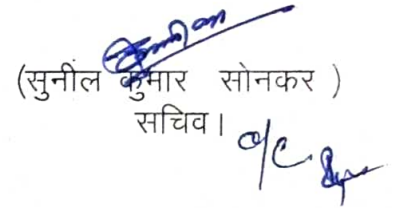 (सुनील कुमार सोनकर )
सचिव।
o/c